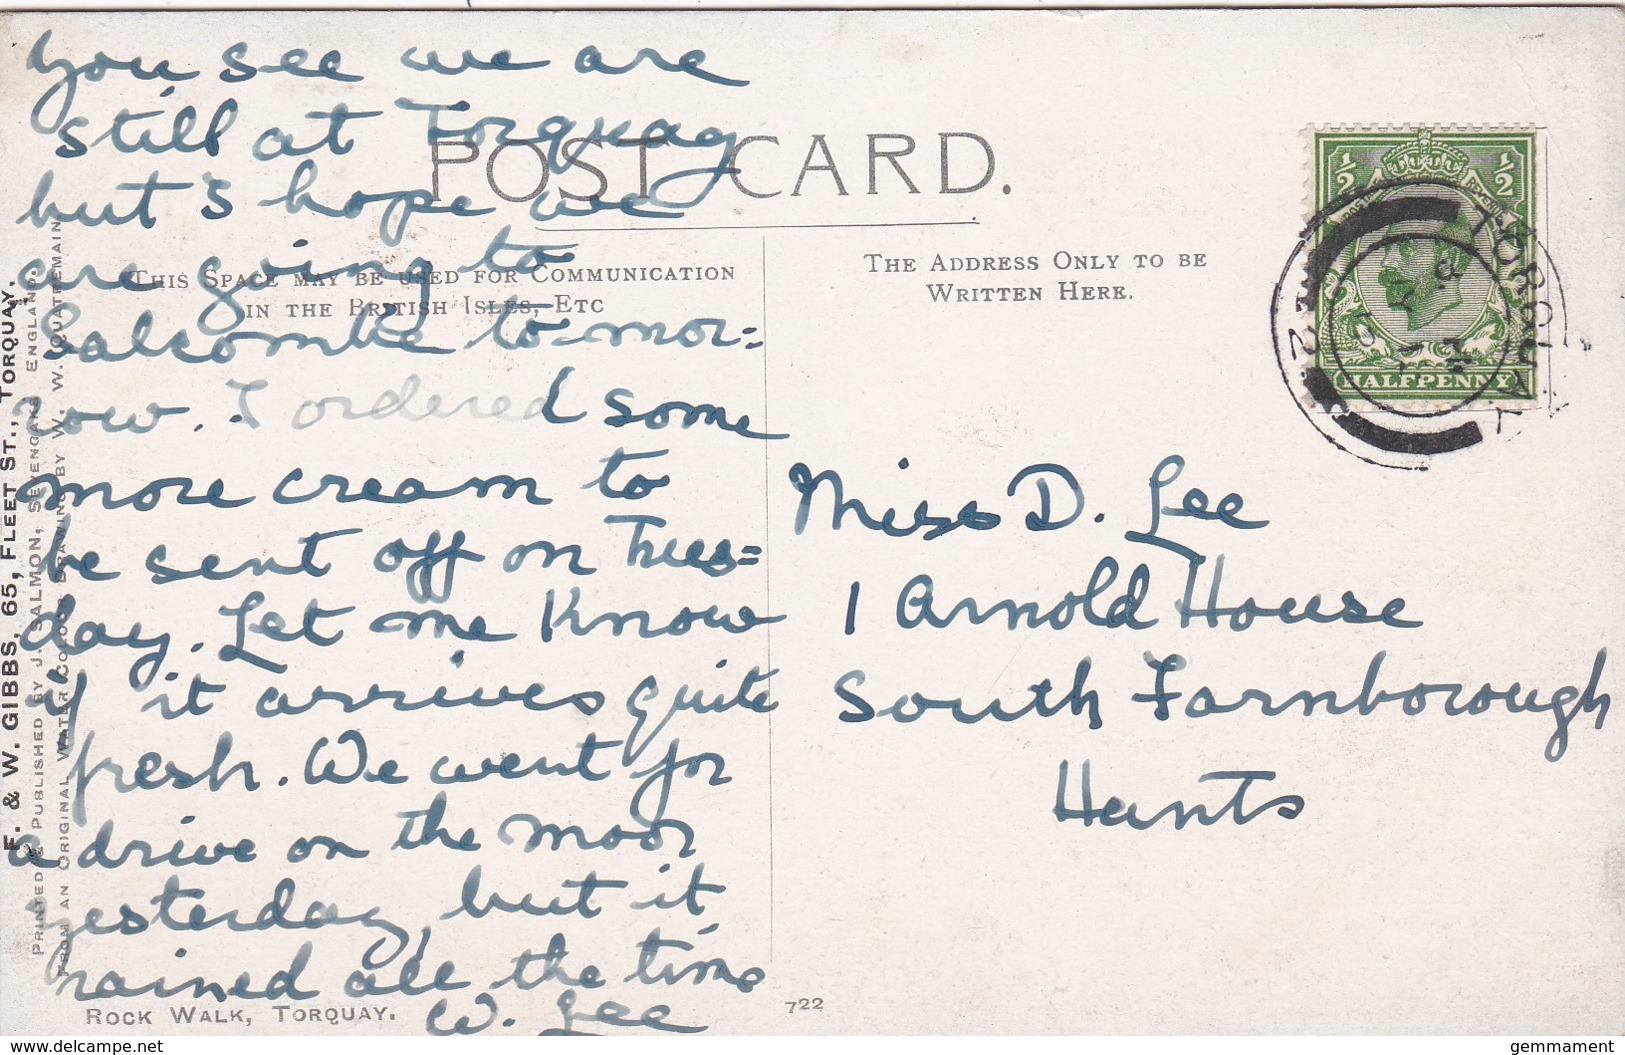 You see we are
still at Torquay
but I hope we
are going to
Salcombe to=mor=
row. I ordered some
more cream to
be sent off on Tues=
day. Let me know
if it arrives quite
fresh. We went for
a drive on the moor
yesterday, but it
rained all the time
W. Lee
POST CARD.
THIS SPACE MAY BE USED FOR COMMUNICATION
IN THE BRITISH ISLES, ETC
THE ADDRESS ONLY TO BE
WRITTEN HERE.
½ ½
HALFPENNY
TORQUAY
Miss D. Lee
1 Arnold House
South Farnborough
Hants
F. & W. GIBBS, 65, FLEET ST., TORQUAY.
PRINTED & PUBLISHED BY J. SALMON, SEVENOAKS, ENGLAND.
FROM AN ORIGINAL WATER COLOUR DRAWING BY W. W. QUATREMAIN
ROCK WALK, TORQUAY.
722
www.delcampe.net
gemmament